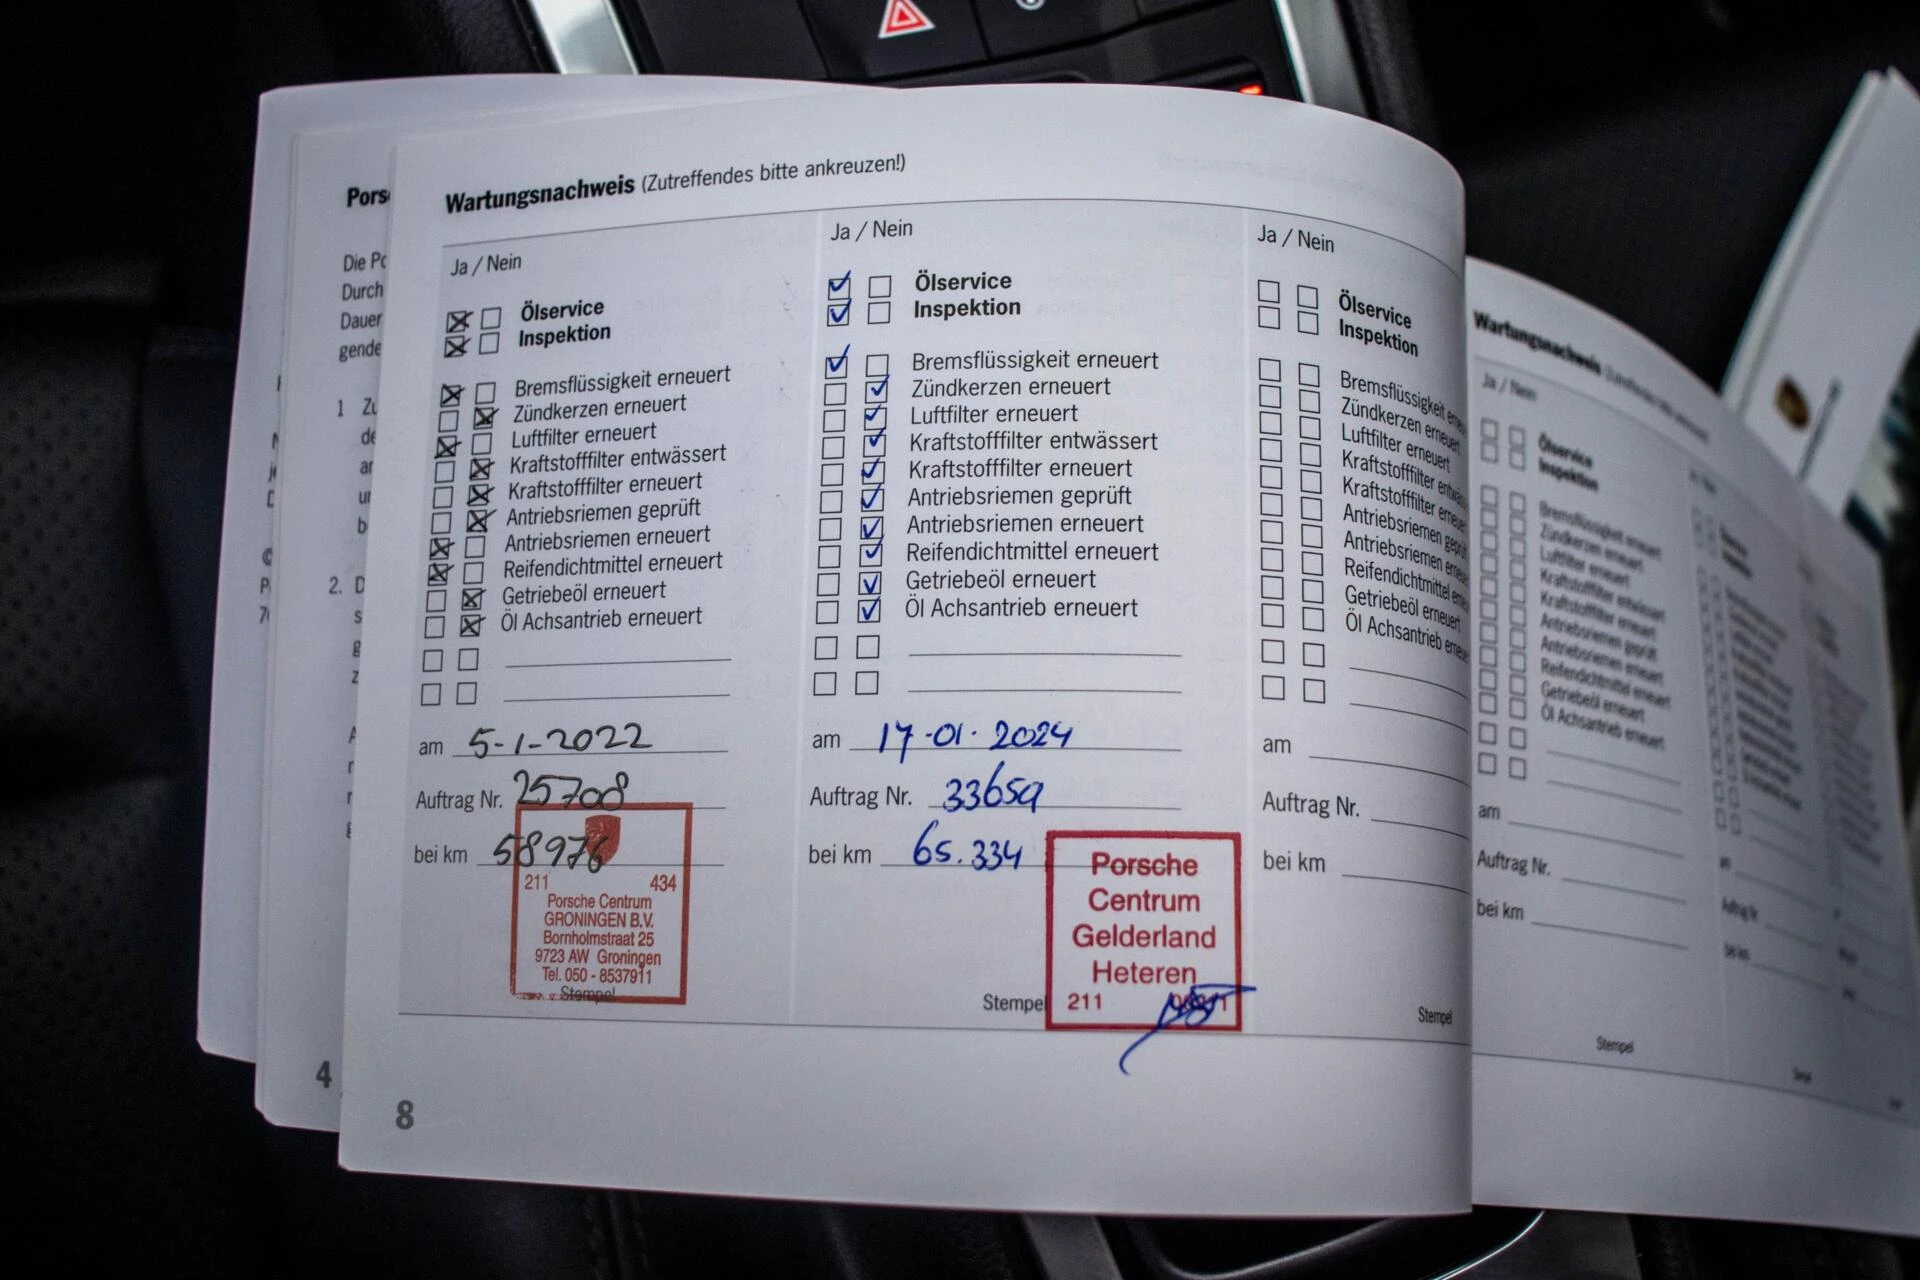 Wartungsnachweis (Zutreffendes bitte ankreuzen!)
Ja / Nein
Ölservice
Inspektion
Bremsflüssigkeit erneuert
Zündkerzen erneuert
Luftfilter erneuert
Kraftstofffilter entwässert
Kraftstofffilter erneuert
Antriebsriemen geprüft
Antriebsriemen erneuert
Reifendichtmittel erneuert
Getriebeöl erneuert
Öl Achsantrieb erneuert
am 5-1-2022
Auftrag Nr. 25708
bei km 58976
211 434
Porsche Centrum
GRONINGEN B.V.
Bornholmstraat 25
9723 AW Groningen
Tel. 050 - 8537911
Stempel
Ja / Nein
Ölservice
Inspektion
Bremsflüssigkeit erneuert
Zündkerzen erneuert
Luftfilter erneuert
Kraftstofffilter entwässert
Kraftstofffilter erneuert
Antriebsriemen geprüft
Antriebsriemen erneuert
Reifendichtmittel erneuert
Getriebeöl erneuert
Öl Achsantrieb erneuert
am 17-01-2024
Auftrag Nr. 33659
bei km 65.334
Porsche
Centrum
Gelderland
Heteren
Stempel 211
Ja / Nein
Ölservice
Inspektion
Bremsflüssigkeit
Zündkerzen erneuert
Luftfilter erneuert
Kraftstofffilter
Kraftstofffilter
Antriebsriemen
Antriebsriemen
Reifendichtmittel
Getriebeöl
Öl Achsantrieb
am
Auftrag Nr.
bei km
Stempel
8
Wartungsnachweis
Ja / Nein
Ölservice
Inspektion
Bremsflüssigkeit erneuert
Zündkerzen erneuert
Luftfilter erneuert
Kraftstofffilter entwässert
Kraftstofffilter erneuert
Antriebsriemen geprüft
Antriebsriemen erneuert
Reifendichtmittel erneuert
Getriebeöl erneuert
Öl Achsantrieb erneuert
am
Auftrag Nr.
bei km
Stempel
Die
Durch
Dauer
1
2.
4